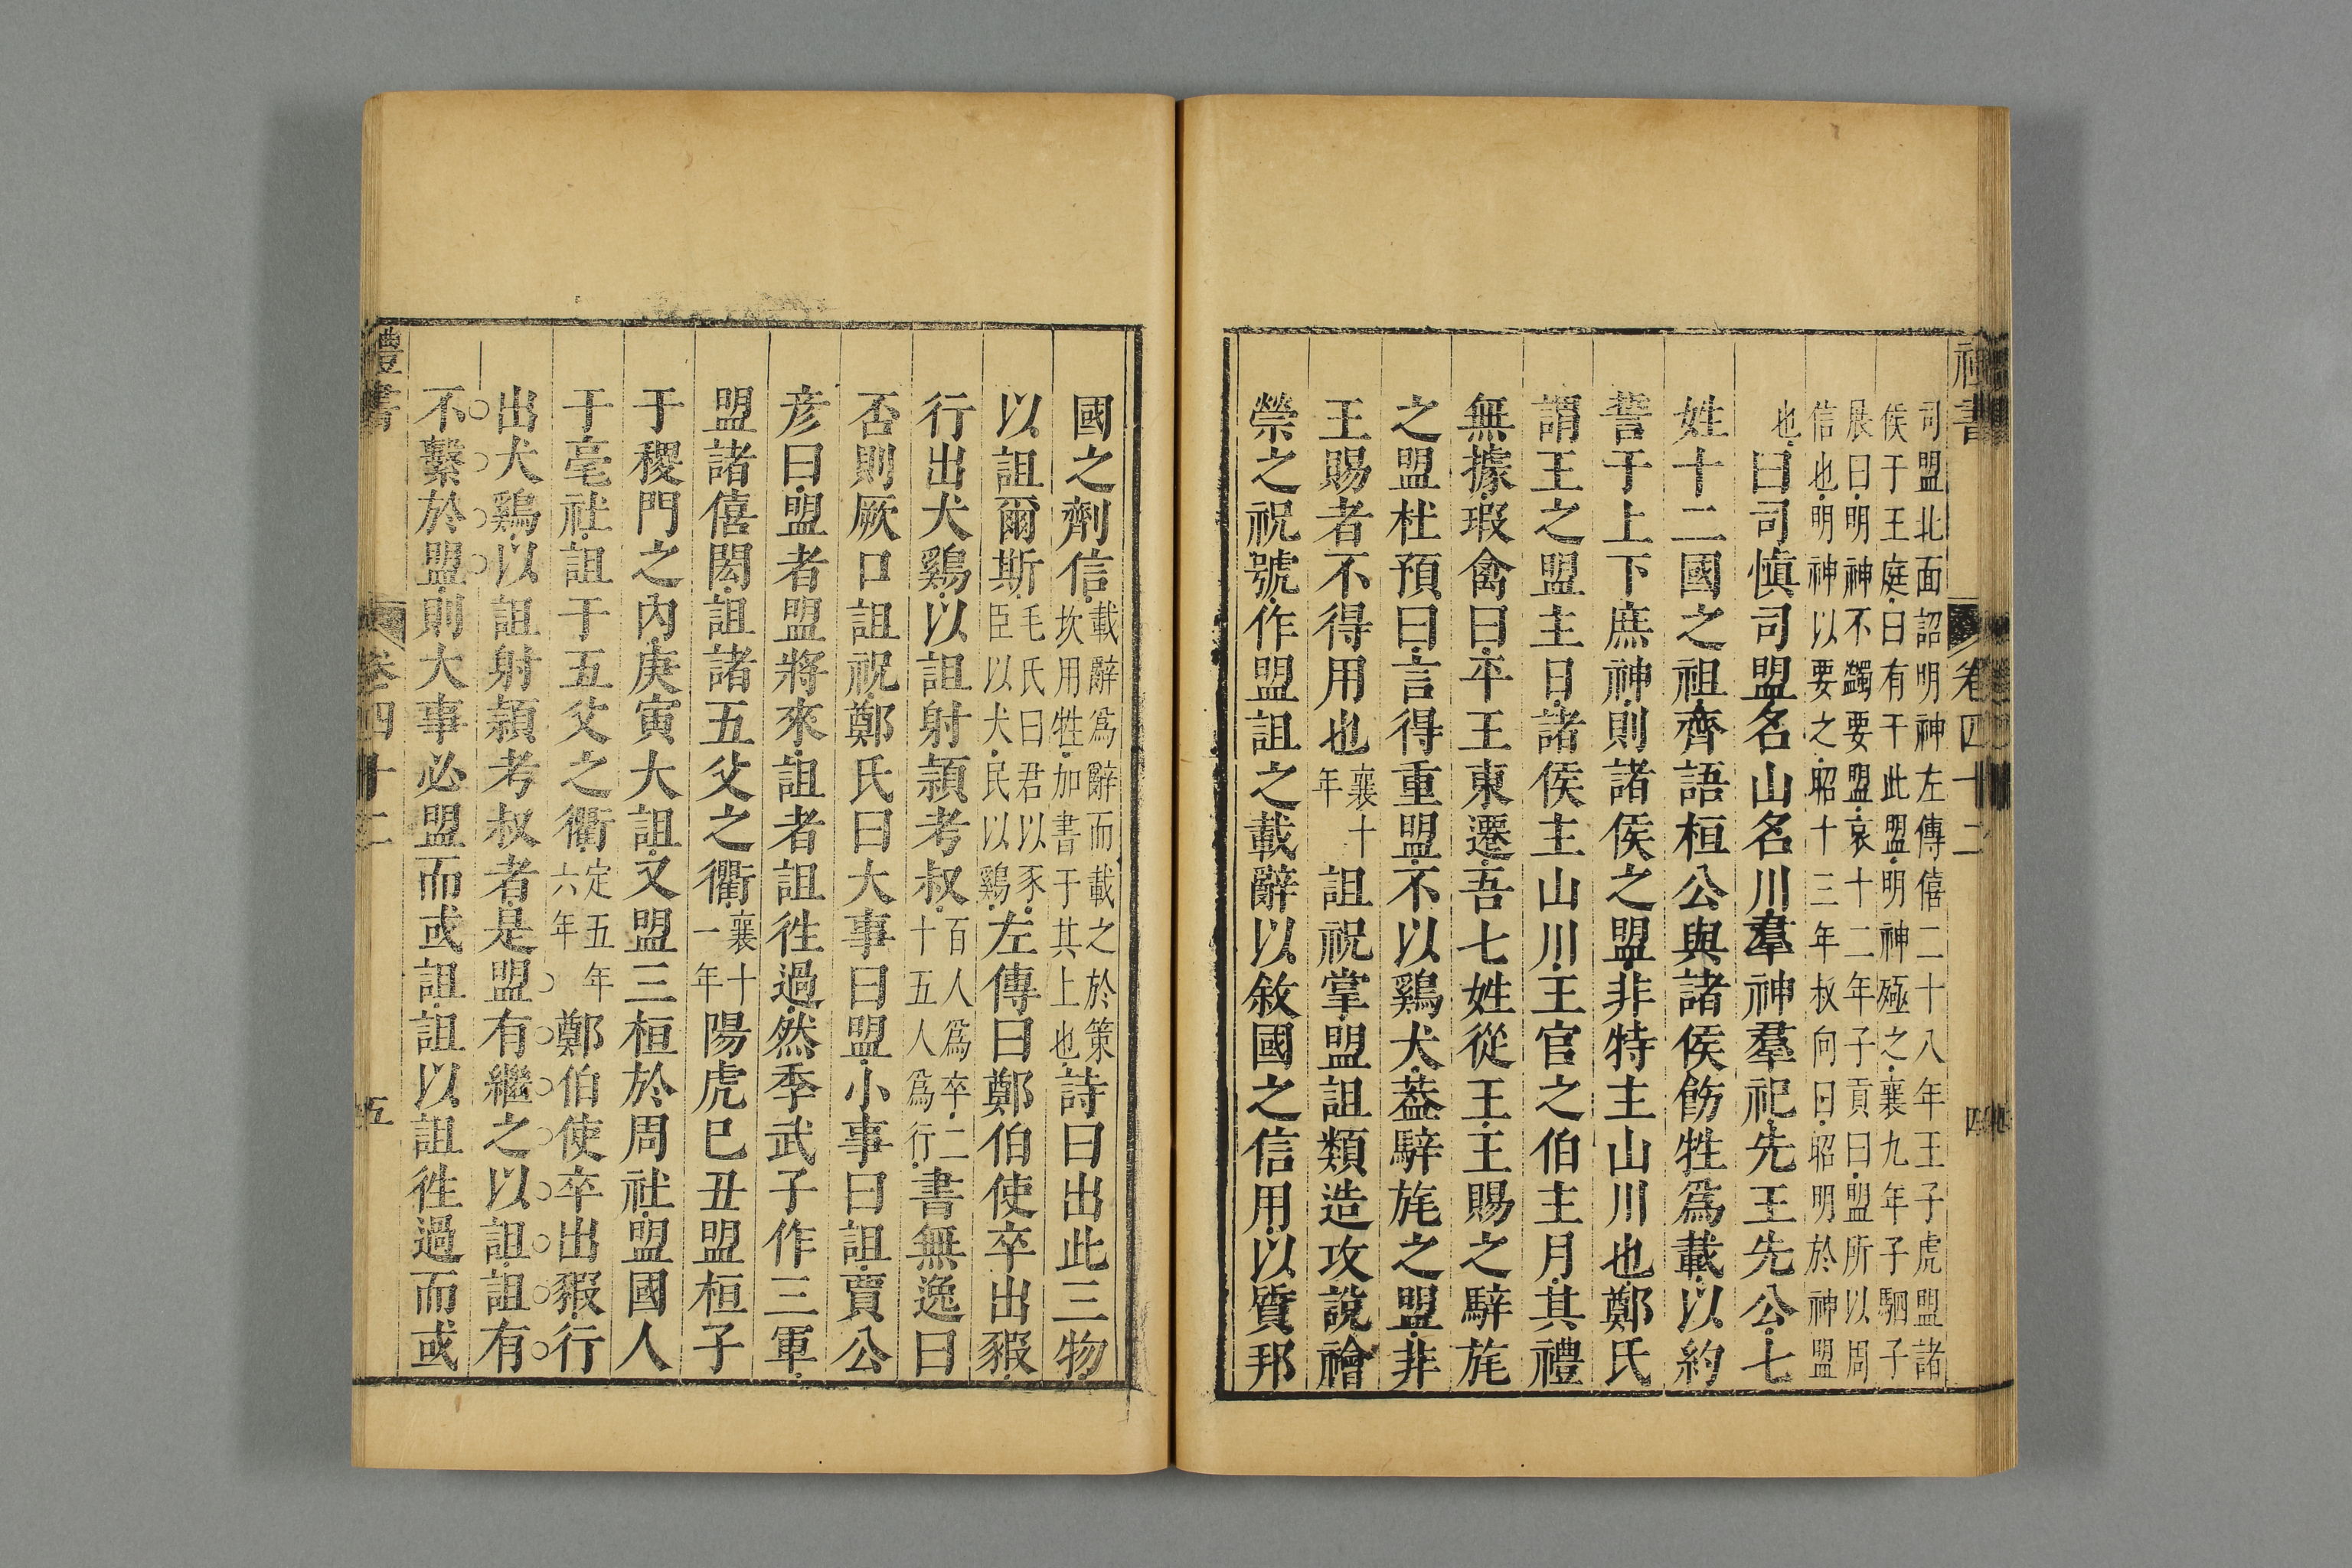 禮書
卷四十二
四
司盟北面詔明神左傳僖二十八年王子虎盟諸
侯于王庭曰有干此盟明神殛之襄九年子駟子
展曰明神不蠲要盟哀十二年子貢曰盟所以周
信也明神以要之昭十三年叔向曰昭明於神盟
也曰司愼司盟名山名川羣神羣祀先王先公七
姓十二國之祖齊語桓公與諸侯飭牲爲載以約
誓于上下庶神則諸侯之盟非特主山川也鄭氏
謂王之盟主日諸侯主山川王官之伯主月其禮
無據瑕禽曰平王東遷吾七姓從王王賜之騂旄
之盟杜預曰言得重盟不以鷄犬葢騂旄之盟非
王賜者不得用也
襄十
年
詛祝掌盟詛類造攻說禬
禜之祝號作盟詛之載辭以敘國之信用以質邦
國之劑信
載辭爲辭而載之於策
坎用牲加書于其上也
詩曰出此三物
以詛爾斯
毛氏曰君以豕
臣以犬民以鷄
左傳曰鄭伯使卒出豭
行出犬鷄以詛射潁考叔
百人爲卒二
十五人爲行
書無逸曰
否則厥口詛祝鄭氏曰大事曰盟小事曰詛賈公
彦曰盟者盟將來詛者詛徃過然季武子作三軍
盟諸僖閎詛諸五父之衢
襄十
一年
陽虎巳丑盟桓子
于稷門之內庚寅大詛又盟三桓於周社盟國人
于亳社詛于五父之衢
定五年
六年
鄭伯使卒出豭行
出犬鷄以詛射潁考叔者是盟有繼之以詛詛有
不繫於盟則大事必盟而或詛詛以詛徃過而或
禮書
卷四十二
五